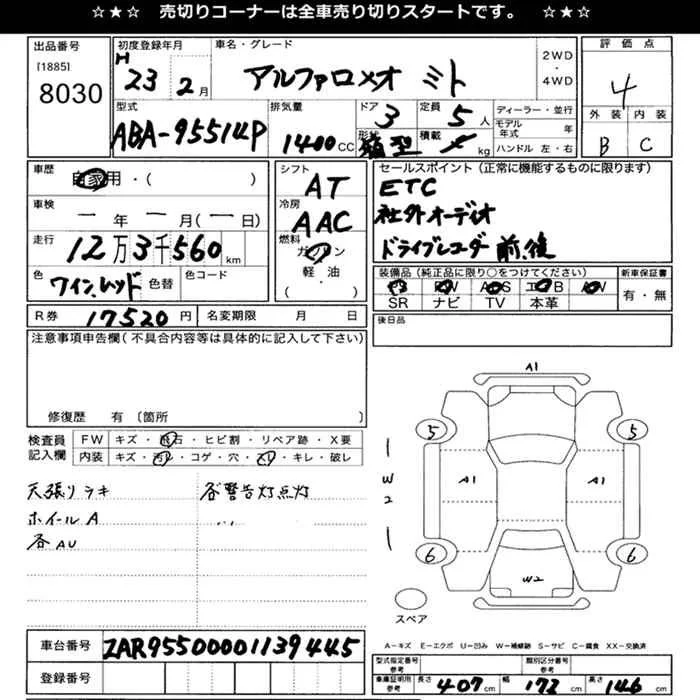 ☆★☆ 売切りコーナーは全車売り切りスタートです。 ☆★☆
出品番号 [1885] 8030
初度登録年月 H 23 2月
車名・グレード アルファロメオ ミト
2WD・4WD
評価点 4
外装 B 内装 C
型式 ABA-95514P
排気量 1400CC
ドア 3 定員 5人
形状 箱型 積載 kg
ディーラー・並行
モデル年式 年
ハンドル 左・右
車歴 自家用・( )
車検 ー年ー月(ー日)
走行 12万3千560km
色 ワインレッド 色替 色コード
シフト AT
冷房 AAC
燃料 ガソリン
軽・油
( ・ )
セールスポイント(正常に機能するものに限ります)
ETC
社外オーディオ
ドライブレコーダー 前、後
装備品(純正品に限り○をつけてください) 新車保証書
PS PW ABS エアB AW
SR ナビ TV 本革 有・無
R券 17520円 名変期限 月 日
後日品
注意事項申告欄(不具合内容等は具体的に記入して下さい)
修復歴 有 〔箇所 〕
検査員記入欄
FW キズ・飛石・ヒビ割・リペア跡・X要
内装 キズ・汚れ・コゲ・穴・スレ・キレ・破レ
天張りラキ 各警告灯点灯
ホイールA
各AU
A1
5 5
W2 A1 A1
6 6
W2
スペア
A−キズ E−エクボ U−凹み W−補修跡 S−サビ C−腐食 XX−交換済
車台番号 ZAR95500001139445
登録番号
型式指定番号 参考 類別区分番号 参考
車庫証明用 参考 長さ 407cm 幅 172cm 高さ 146cm